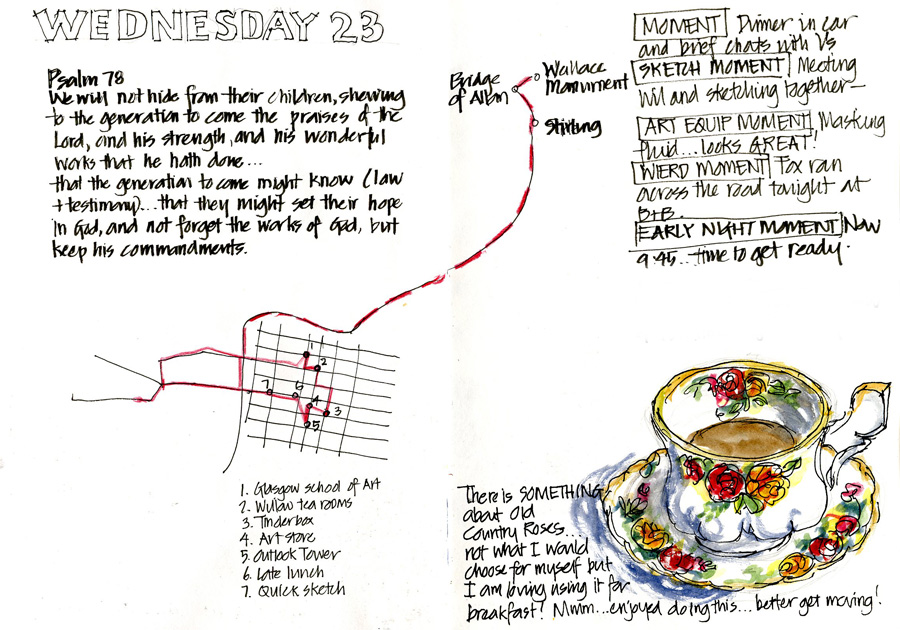 WEDNESDAY 23
Psalm 78
We will not hide from their children, shewing
to the generation to come the praises of the
Lord, and his strength, and his wonderful
works that he hath done...
that the generation to come might know (law
+ testimony)... that they might set their hope
in God, and not forget the works of God, but
keep his commandments.
Bridge
of Allan
Wallace
Monument
Stirling
1
2
7
6
4
3
5
1. Glasgow school of Art
2. Willow tea rooms
3. Tinderbox
4. Art store
5. Outlook Tower
6. Late lunch
7. Quick sketch
MOMENT Dinner in car
and brief chats with Vs
SKETCH MOMENT Meeting
Wil and sketching together—
ART EQUIP MOMENT Masking
fluid... looks GREAT!
WIERD MOMENT Fox ran
across the road tonight at
B+B.
EARLY NIGHT MOMENT Now
9.45... time to get ready.
There is SOMETHING
about Old
Country Roses...
not what I would
choose for myself but
I am loving using it for
breakfast! Mmm... enjoyed doing this... better get moving!